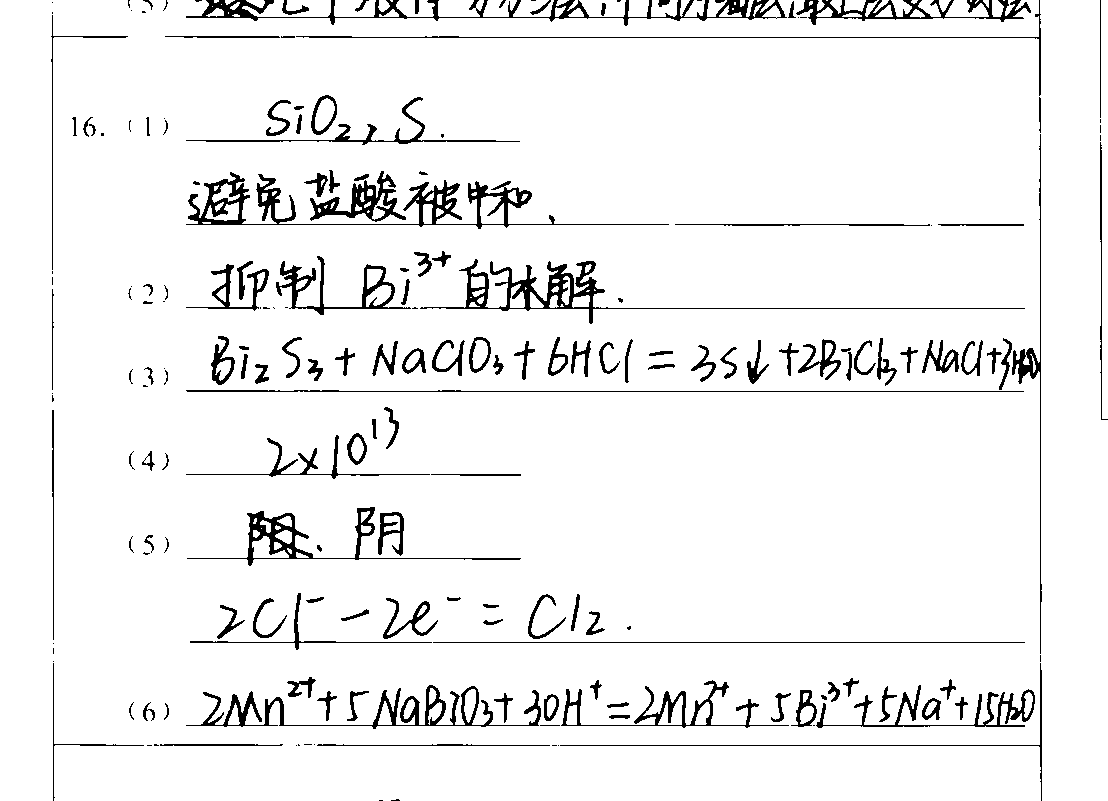 (5)
16. (1) SiO₂, S.
避免盐酸被中和.
(2) 抑制 Bi³⁺ 的水解.
(3) Bi₂S₃ + NaClO₃ + 6HCl = 3S↓ + 2BiCl₃ + NaCl + 3H₂O
(4) 2×10¹³
(5) 阴
2Cl⁻ − 2e⁻ = Cl₂.
(6) 2Mn²⁺ + 5NaBiO₃ + 30H⁺ = 2Mn²⁺ + 5Bi³⁺ + 5Na⁺ + 15H₂O